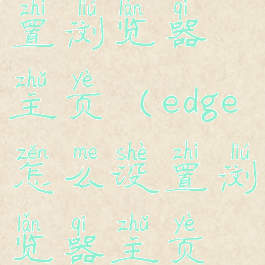 zhì liú lǎn qì
置浏览器
zhǔ yè
主页(edge
zěn me shè zhì liú
怎么设置浏
lǎn qì zhǔ yè
览器主页